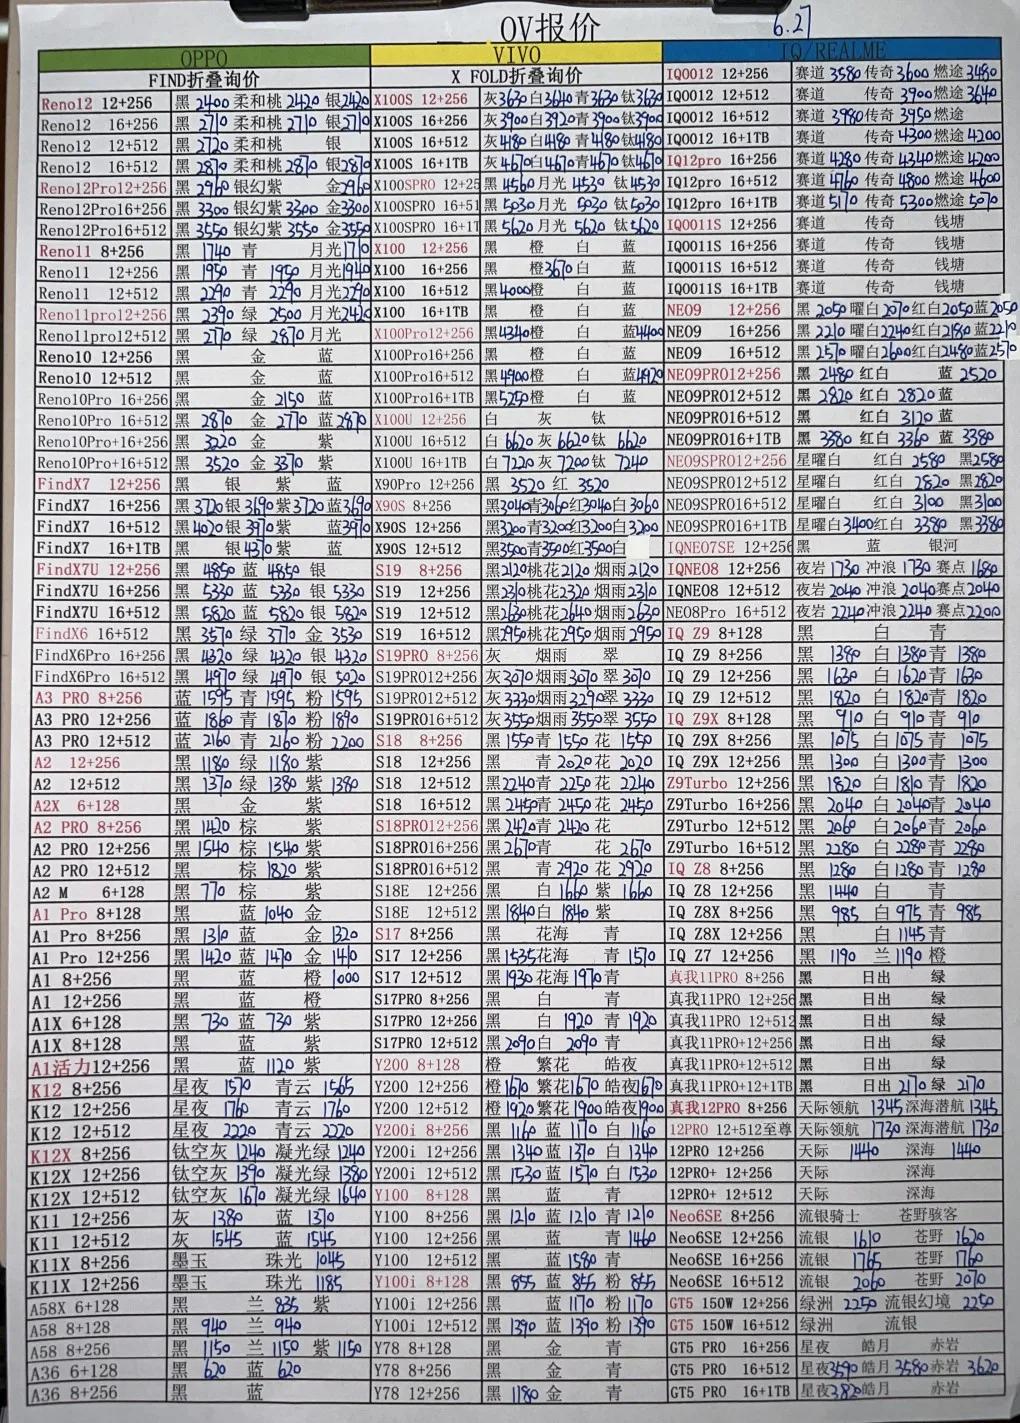 OV报价 6.27
OPPO VIVO IQ/REALME
FIND折叠询价 X FOLD折叠询价 IQ0012 12+256 赛道 3580 传奇 3600 燃途 3480
Reno12 12+256 黑 2400 柔和桃 2420 银 2420 X100S 12+256 灰 3630 白 3640 青 3630 钛 3630 IQ0012 12+512 赛道 传奇 3900 燃途 3640
Reno12 16+256 黑 2710 柔和桃 2710 银 2710 X100S 16+256 灰 3900 白 3920 青 3900 钛 3900 IQ0012 16+512 赛道 3980 传奇 3950 燃途
Reno12 12+512 黑 2720 柔和桃 银 X100S 16+512 灰 4180 白 4180 青 4180 钛 4180 IQ0012 16+1TB 赛道 传奇 4300 燃途 4200
Reno12 16+512 黑 2870 柔和桃 2870 银 2870 X100S 16+1TB 灰 4670 白 4670 青 4670 钛 4670 IQ12pro 16+256 赛道 4280 传奇 4340 燃途 4200
Reno12Pro12+256 黑 2960 银幻紫 金 2960 X100SPRO 12+25 黑 4560 月光 4530 钛 4530 IQ12pro 16+512 赛道 4760 传奇 4800 燃途 4600
Reno12Pro16+256 黑 3300 银幻紫 3300 金 3300 X100SPRO 16+51 黑 5030 月光 5030 钛 5030 IQ12pro 16+1TB 赛道 5170 传奇 5300 燃途 5070
Reno12Pro16+512 黑 3550 银幻紫 3550 金 3550 X100SPRO 16+1T 黑 5620 月光 5620 钛 5620 IQ0011S 12+256 赛道 传奇 钱塘
Reno11 8+256 黑 1740 青 月光 1710 X100 12+256 黑 橙 白 蓝 IQ0011S 16+256 赛道 传奇 钱塘
Reno11 12+256 黑 1950 青 1950 月光 1940 X100 16+256 黑 橙 3670 白 蓝 IQ0011S 16+512 赛道 传奇 钱塘
Reno11 12+512 黑 2290 青 2290 月光 2290 X100 16+512 黑 4000 橙 白 蓝 IQ0011S 16+1TB 赛道 传奇 钱塘
Reno11pro12+256 黑 2390 绿 2500 月光 2420 X100 16+1TB 黑 橙 白 蓝 NE09 12+256 黑 2050 曜白 2070 红白 2050 蓝 2050
Reno11pro12+512 黑 2770 绿 2870 月光 X100Pro12+256 黑 4340 橙 白 蓝 4400 NE09 16+256 黑 2210 曜白 2240 红白 2180 蓝 2210
Reno10 12+256 黑 金 蓝 X100Pro16+256 黑 橙 白 蓝 NE09 16+512 黑 2570 曜白 2600 红白 2480 蓝 2570
Reno10 12+512 黑 金 蓝 X100Pro16+512 黑 4900 橙 白 蓝 4920 NE09PRO12+256 黑 2480 红白 蓝 2520
Reno10Pro 16+256 黑 金 2150 蓝 X100Pro16+1TB 黑 5250 橙 白 蓝 NE09PRO12+512 黑 2820 红白 2820 蓝
Reno10Pro 16+512 黑 2870 金 2770 蓝 2870 X100U 12+256 白 灰 钛 NE09PRO16+512 黑 红白 3120 蓝
Reno10Pro+16+256 黑 3220 金 紫 X100U 16+512 白 6620 灰 6620 钛 6620 NE09PRO16+1TB 黑 3380 红白 3360 蓝 3380
Reno10Pro+16+512 黑 3520 金 3370 紫 X100U 16+1TB 白 7220 灰 7200 钛 7240 NE09SPRO12+256 星曜白 红白 2580 黑 2580
FindX7 12+256 黑 银 紫 蓝 X90Pro 12+256 黑 3520 红 3520 NE09SPRO12+512 星曜白 红白 2820 黑 2820
FindX7 16+256 黑 3720 银 3690 紫 3720 蓝 3690 X90S 8+256 黑 3040 青 3060 红 3040 白 3060 NE09SPRO16+512 星曜白 红白 3100 黑 3100
FindX7 16+512 黑 4020 银 3970 紫 蓝 3970 X90S 12+256 黑 3200 青 3200 红 3200 白 3200 NE09SPRO16+1TB 星曜白 3400 红白 3380 黑 3380
FindX7 16+1TB 黑 银 4370 紫 蓝 X90S 12+512 黑 3500 青 3500 红 3500 白 IQNEO7SE 12+256 黑 蓝 银河
FindX7U 12+256 黑 4850 蓝 4850 银 S19 8+256 黑 2120 桃花 2120 烟雨 2120 IQNE08 12+256 夜岩 1730 冲浪 1730 赛点 1680
FindX7U 16+256 黑 5330 蓝 5330 银 5330 S19 12+256 黑 2310 桃花 2320 烟雨 2310 IQNE08 12+512 夜岩 2040 冲浪 2040 赛点 2040
FindX7U 16+512 黑 5820 蓝 5820 银 5820 S19 12+512 黑 2630 桃花 2640 烟雨 2630 NE08Pro 16+512 夜岩 2240 冲浪 2240 赛点 2200
FindX6 16+512 黑 3570 绿 3770 金 3530 S19 16+512 黑 2950 桃花 2950 烟雨 2950 IQ Z9 8+128 黑 白 青
FindX6Pro 16+256 黑 4320 绿 4320 银 4320 S19PRO 8+256 灰 烟雨 翠 IQ Z9 8+256 黑 1380 白 1380 青 1380
FindX6Pro 16+512 黑 4970 绿 4970 银 5020 S19PRO12+256 灰 3070 烟雨 3070 翠 3070 IQ Z9 12+256 黑 1630 白 1620 青 1630
A3 PRO 8+256 蓝 1595 青 1595 粉 1595 S19PRO12+512 灰 3330 烟雨 3290 翠 3330 IQ Z9 12+512 黑 1820 白 1820 青 1820
A3 PRO 12+256 蓝 1860 青 1870 粉 1890 S19PRO16+512 灰 3550 烟雨 3550 翠 3550 IQ Z9X 8+128 黑 910 白 910 青 910
A3 PRO 12+512 蓝 2160 青 2160 粉 2200 S18 8+256 黑 1550 青 1550 花 1550 IQ Z9X 8+256 黑 1075 白 1075 青 1075
A2 12+256 黑 1180 绿 1180 紫 S18 12+256 黑 青 2020 花 2020 IQ Z9X 12+256 黑 1300 白 1300 青 1300
A2 12+512 黑 1370 绿 1380 紫 1380 S18 12+512 黑 2240 青 2250 花 2240 Z9Turbo 12+256 黑 1820 白 1810 青 1820
A2X 6+128 黑 金 紫 S18 16+512 黑 2450 青 2450 花 2450 Z9Turbo 16+256 黑 2040 白 2040 青 2040
A2 PRO 8+256 黑 1420 棕 紫 S18PRO12+256 黑 2420 青 2420 花 Z9Turbo 12+512 黑 2060 白 2060 青 2060
A2 PRO 12+256 黑 1540 棕 1540 紫 S18PRO16+256 黑 2670 青 花 2670 Z9Turbo 16+512 黑 2280 白 2280 青 2280
A2 PRO 12+512 黑 棕 1820 紫 S18PRO16+512 黑 青 2920 花 2920 IQ Z8 8+256 黑 1280 白 1280 青 1280
A2 M 6+128 黑 770 棕 紫 S18E 12+256 黑 白 1660 紫 1660 IQ Z8 12+256 黑 1440 白 青
A1 Pro 8+128 黑 蓝 1040 金 S18E 12+512 黑 1840 白 1840 紫 IQ Z8X 8+256 黑 985 白 975 青 985
A1 Pro 8+256 黑 1310 蓝 金 1320 S17 8+256 黑 花海 青 IQ Z8X 12+256 黑 白 1145 青
A1 Pro 12+256 黑 1420 蓝 1470 金 1410 S17 12+256 黑 1535 花海 青 1570 IQ Z7 12+256 黑 1190 兰 1190 橙
A1 8+256 黑 蓝 橙 1000 S17 12+512 黑 1930 花海 1970 青 真我11PRO 8+256 黑 日出 绿
A1 12+256 黑 蓝 橙 S17PRO 8+256 黑 白 青 真我11PRO 12+256 黑 日出 绿
A1X 6+128 黑 730 蓝 730 紫 S17PRO 12+256 黑 白 1920 青 1920 真我11PRO 12+512 黑 日出 绿
A1X 8+256 黑 蓝 紫 S17PRO 12+512 黑 2090 白 2090 青 真我11PRO+12+256 黑 日出 绿
A1活力12+256 黑 蓝 1120 紫 Y200 8+128 橙 繁花 皓夜 真我11PRO+12+512 黑 日出 绿
K12 8+256 星夜 1570 青云 1565 Y200 12+256 橙 1670 繁花 1670 皓夜 1670 真我11PRO+12+1TB 黑 日出 2170 绿 2170
K12 12+256 星夜 1760 青云 1760 Y200 12+512 橙 1920 繁花 1900 皓夜 1900 真我12PRO 8+256 天际领航 1345 深海潜航 1345
K12 12+512 星夜 2220 青云 2220 Y200i 8+256 黑 1160 蓝 1170 白 1160 12PRO 12+512至尊 天际领航 1730 深海潜航 1730
K12X 8+256 钛空灰 1240 凝光绿 1240 Y200i 12+256 黑 1340 蓝 1370 白 1340 12PRO 12+256 天际 1440 深海 1440
K12X 12+256 钛空灰 1390 凝光绿 1380 Y200i 12+512 黑 1530 蓝 1570 白 1530 12PRO+ 12+256 天际 深海
K12X 12+512 钛空灰 1670 凝光绿 1640 Y100 8+128 黑 蓝 青 12PRO+ 12+512 天际 深海
K11 12+256 灰 1380 蓝 1370 Y100 8+256 黑 1210 蓝 1210 青 1210 Neo6SE 8+256 流银骑士 苍野骇客
K11 12+512 灰 1545 蓝 1545 Y100 12+256 黑 蓝 青 1460 Neo6SE 12+256 流银 1610 苍野 1620
K11X 8+256 墨玉 珠光 1045 Y100 12+512 黑 蓝 1580 青 Neo6SE 16+256 流银 1765 苍野 1760
K11X 12+256 墨玉 珠光 1185 Y100i 8+128 黑 855 蓝 855 粉 855 Neo6SE 16+512 流银 2060 苍野 2070
A58X 6+128 黑 兰 835 紫 Y100i 12+256 黑 蓝 1170 粉 1170 GT5 150W 12+256 绿洲 2250 流银幻境 2250
A58 8+128 黑 940 兰 940 Y100i 12+512 黑 1390 蓝 1390 粉 1390 GT5 150W 16+512 绿洲 流银
A58 8+256 黑 1150 兰 1150 紫 1150 Y78 8+128 黑 金 青 GT5 PRO 16+256 星夜 皓月 赤岩
A36 6+128 黑 620 蓝 620 Y78 8+256 黑 金 青 GT5 PRO 16+512 星夜 3590 皓月 3580 赤岩 3620
A36 8+256 黑 蓝 Y78 12+256 黑 1180 金 青 GT5 PRO 16+1TB 星夜 3820 皓月 赤岩